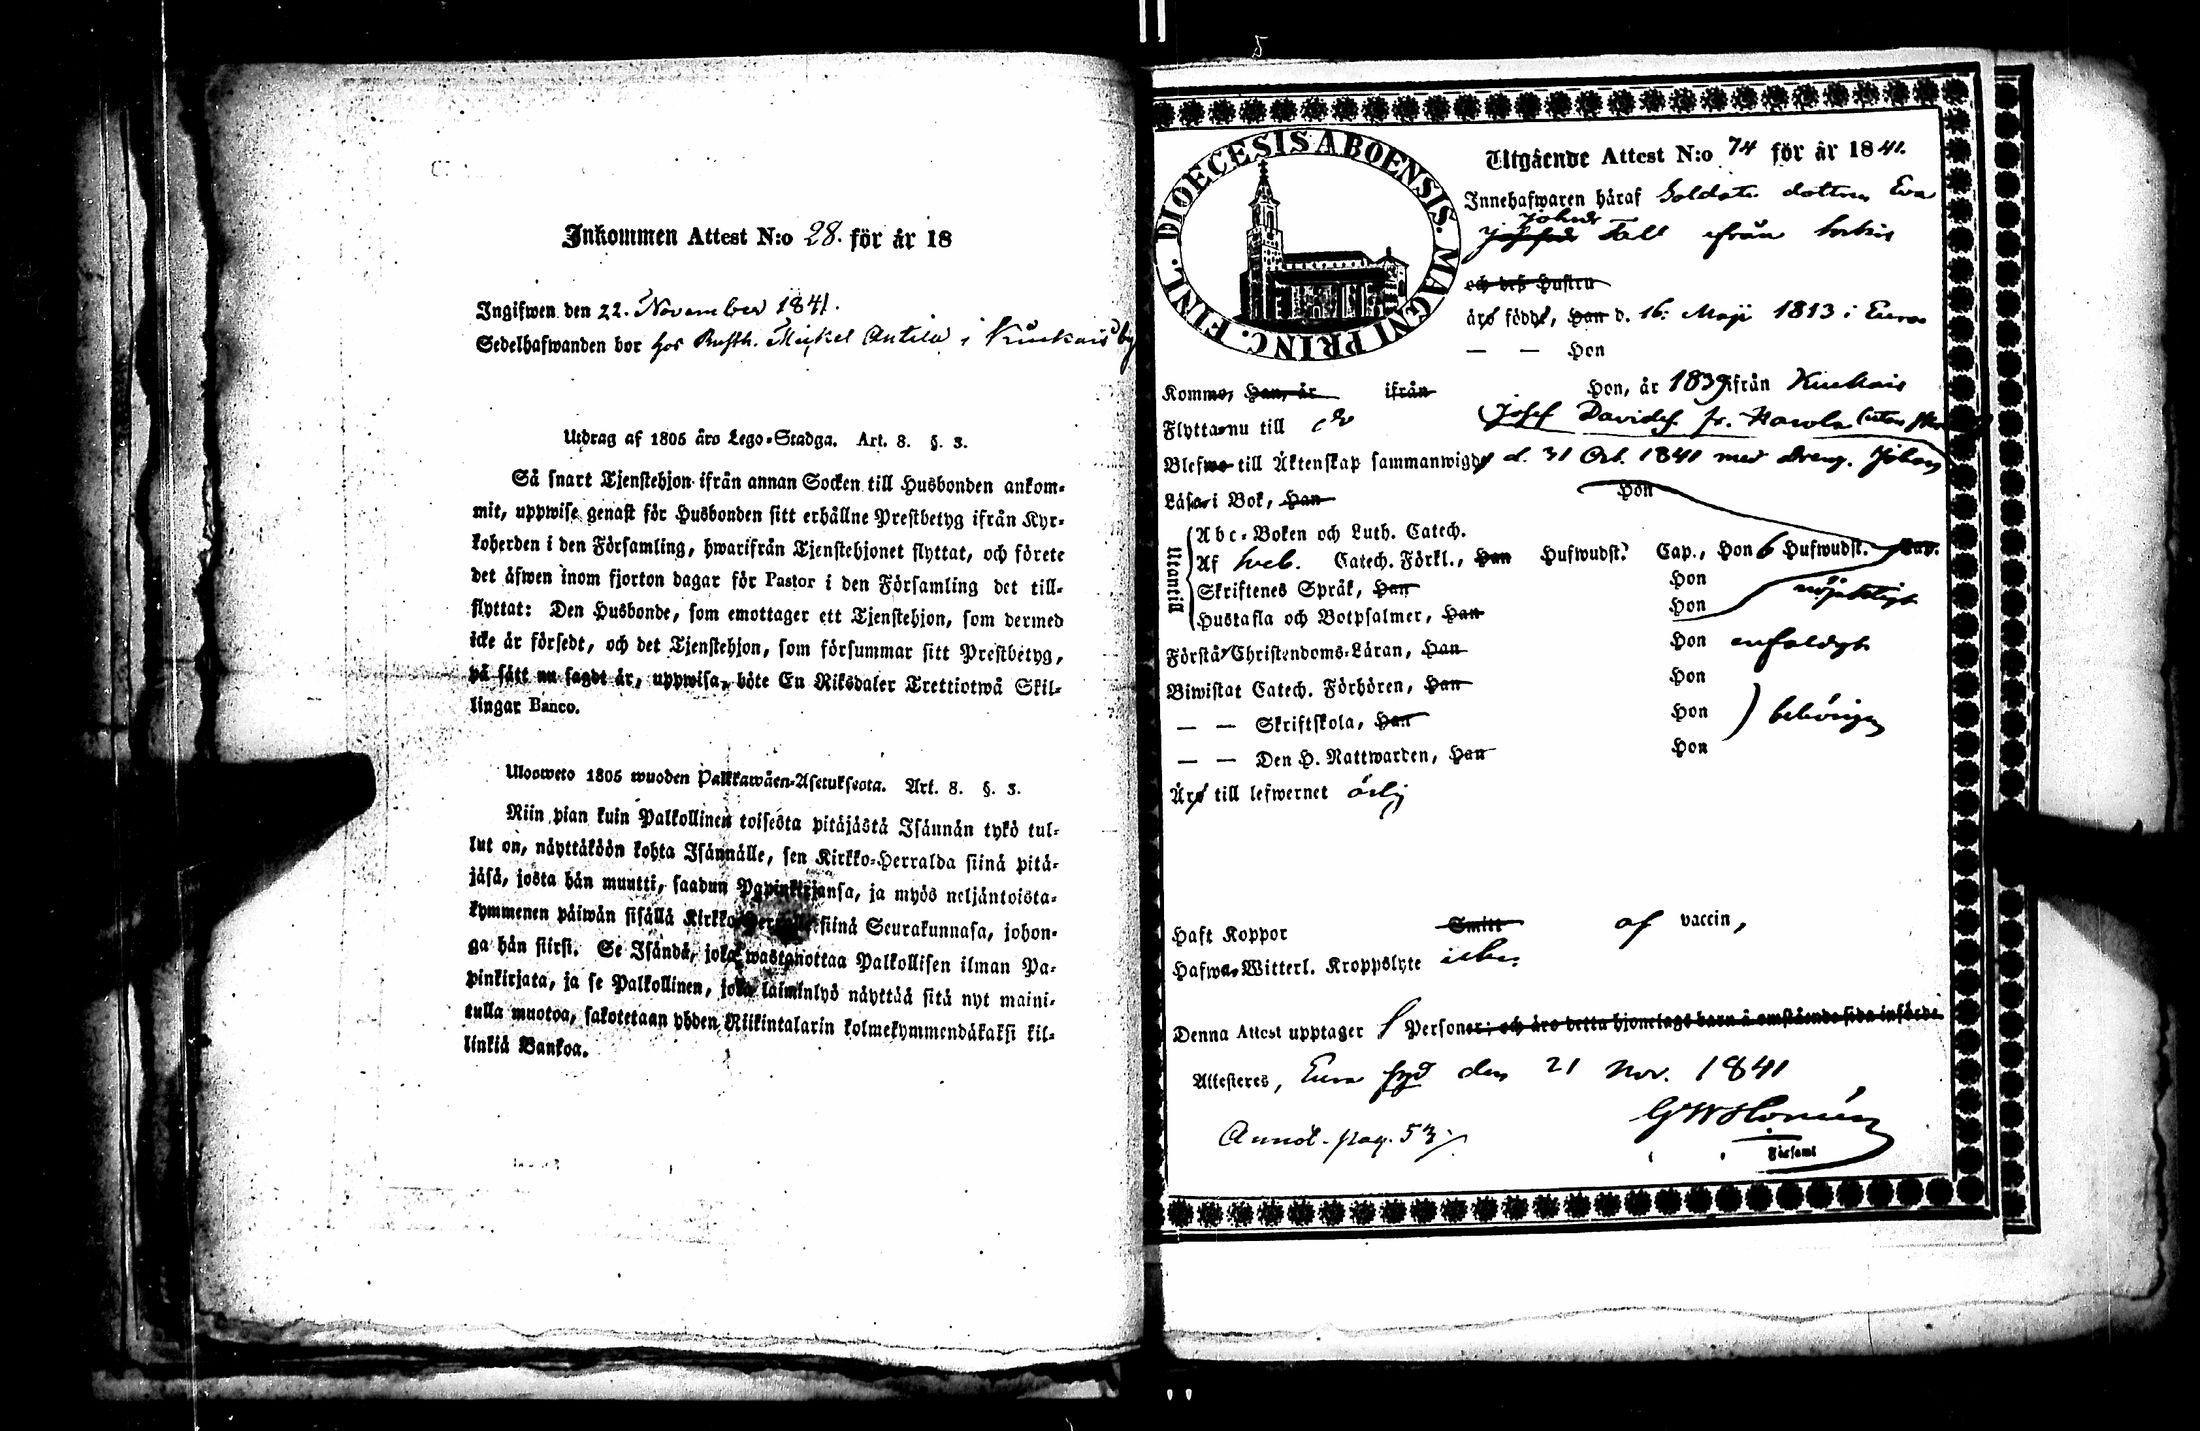 Inkommen Attest N:o 28. för år 18
Ingifwen den 22. November 1841.
Sedelhafwanden bor hos Rusth. Mickel Antila i Kiukais by
Utdrag af 1805 års Lego-Stadga. Art. 8. §. 3.
Så snart Tjenstehjon ifrån annan Socken till Husbonden ankom-
mit, uppwise genast för Husbonden sitt erhållne Prestbetyg ifrån Kyr-
koherden i den Församling, hwarifrån Tjenstehjonet flyttat, och förete
det äfwen inom fjorton dagar för Pastor i den Församling det till-
flyttat: Den Husbonde, som emottager ett Tjenstehjon, som dermed
icke är försedt, och det Tjenstehjon, som försummar sitt Prestbetyg,
på sätt nu sagdt är, uppwisa, böte En Riksdaler Trettiotwå Skil-
lingar Banco.
Ulosweto 1805 wuoden Palkkawäen-Asetuksesta. Art. 8. §. 3.
Niin pian kuin Palkollinen toisesta pitäjästä Isännän tykö tul-
lut on, näyttäköön kohta Isännälle, sen Kirkko-Herralda siinä pitä-
jäsä, josta hän muutti, saadun Papinkirjansa, ja myös neljäntoista-
kymmenen päiwän sisällä Kirkko-Herralle siinä Seurakunnasa, johon-
ga hän siirsi. Se Isändä, joka wastanottaa Palkollisen ilman Pa-
pinkirjata, ja se Palkollinen, joka laiminlyö näyttää sitä nyt maini-
tulla muotoa, sakotetaan yhden Riikintalarin kolmekymmendäkaksi kil-
linkiä Bankoa.
5
DIOECESIS ABOENSIS. MAGNI PRINC. FINL.
Utgående Attest N:o 74 för år 1841.
Innehafwaren häraf Soldats dottren Eva
Johsdr
Josefsdr Fall ifrån
och deß Hustru
äro födde, Han d. 16. Maji 1813 i Eura
— — Hon
Komme, Han, år ifrån Hon, år 1839 ifrån Kiukais
Flytta nu till do Josef Davidss. fr.
Blefwo till Äktenskap sammanwigde d. 31 Oct. 1841 med Dreng. Johan
Läsa i Bok, Han Hon
Utantill
Abc-Boken och Luth. Catech.
Af Sveb. Catech. Förkl., Han Hufwudst. Cap., Hon 6 Hufwudst. Cap.
Skriftenes Språk, Han Hon nöjaktigt
Hustafla och Botpsalmer, Han Hon
Förstå Christendoms-Läran, Han Hon enfaldigt
Biwistat Catech. Förhören, Han Hon
— — Skriftskola, Han Hon behörigen
— — Den H. Nattwarden, Han Hon
Äro till lefwernet ärlig
Haft Koppor Smitt af vaccin,
Hafwa Witterl. Kroppslyte icke.
Denna Attest upptager 1 Personer; och äro detta hjonelags barn å omstående sida införde.
Attesteres, Eura den 21 Nov. 1841
Annot. pag. 53
Församl